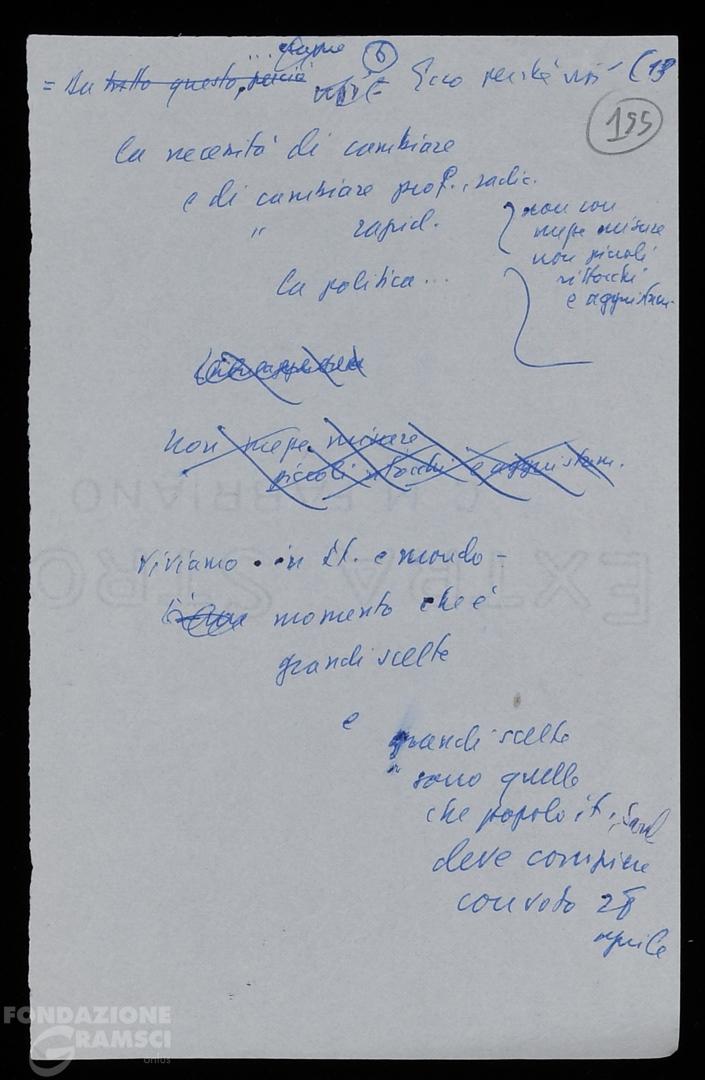 6
= Da tutto questo, perciò Ecco perché (13
195
la necessità di cambiare
e di cambiare prof., radic.
" rapid.
non con
mezze misure
non piccoli
ritocchi
e aggiustam.
la politica...
non mezze misure
piccoli ritocchi e aggiustam.
viviamo in It. e mondo -
momento che è
grandi scelte
e
grandi scelte
sono quelle
che popolo it.
deve compiere
con voto 28
aprile
C.M. FABRIANO
EXTRA STRONG
FONDAZIONE
GRAMSCI
onlus